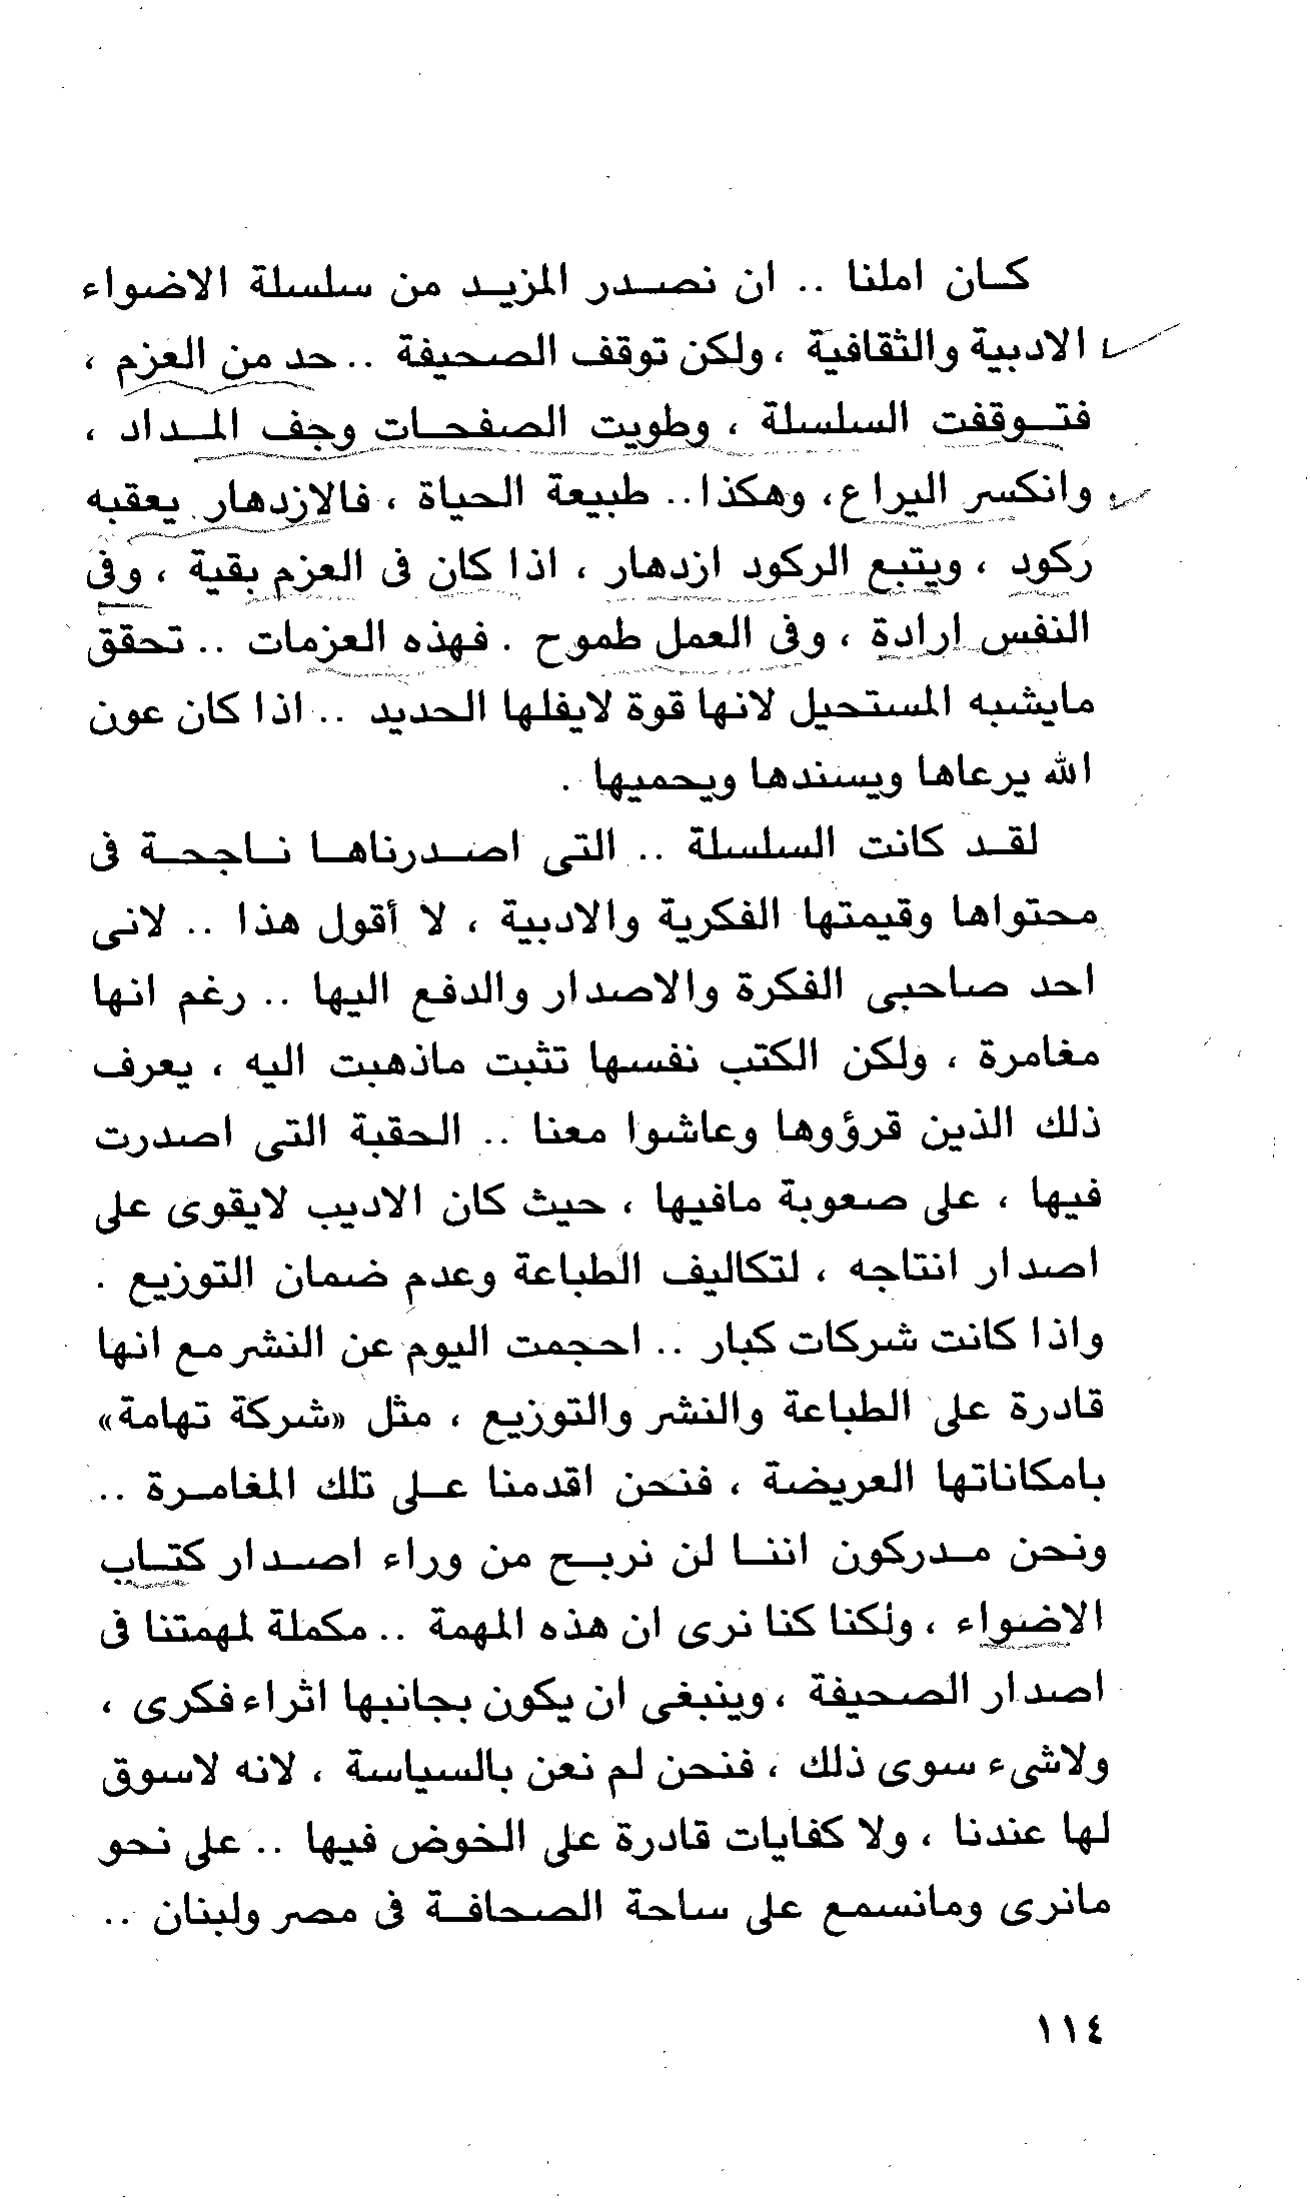 كان املنا .. ان نصدر المزيد من سلسلة الاضواء
الادبية والثقافية ، ولكن توقف الصحيفة .. حد من العزم ،
فتوقفت السلسلة ، وطويت الصفحات وجف المداد ،
وانكسر اليراع، وهكذا.. طبيعة الحياة ، فالازدهار يعقبه
ركود ، ويتبع الركود ازدهار ، اذا كان فى العزم بقية ، وفى
النفس ارادة ، وفى العمل طموح . فهذه العزمات .. تحقق
مايشبه المستحيل لانها قوة لايفلها الحديد .. اذا كان عون
الله يرعاها ويسندها ويحميها .
لقد كانت السلسلة .. التى اصدرناها ناجحة فى
محتواها وقيمتها الفكرية والادبية ، لا أقول هذا .. لانى
احد صاحبى الفكرة والاصدار والدفع اليها .. رغم انها
مغامرة ، ولكن الكتب نفسها تثبت ماذهبت اليه ، يعرف
ذلك الذين قرؤوها وعاشوا معنا .. الحقبة التى اصدرت
فيها ، على صعوبة مافيها ، حيث كان الاديب لايقوى على
اصدار انتاجه ، لتكاليف الطباعة وعدم ضمان التوزيع .
واذا كانت شركات كبار .. احجمت اليوم عن النشر مع انها
قادرة على الطباعة والنشر والتوزيع ، مثل «شركة تهامة»
بامكاناتها العريضة ، فنحن اقدمنا على تلك المغامرة ..
ونحن مدركون اننا لن نربح من وراء اصدار كتاب
الاضواء ، ولكنا كنا نرى ان هذه المهمة .. مكملة لمهمتنا فى
اصدار الصحيفة ، وينبغى ان يكون بجانبها اثراء فكرى ،
ولاشىء سوى ذلك ، فنحن لم نعن بالسياسة ، لانه لاسوق
لها عندنا ، ولا كفايات قادرة على الخوض فيها .. على نحو
مانرى ومانسمع على ساحة الصحافة فى مصر ولبنان ..
١١٤